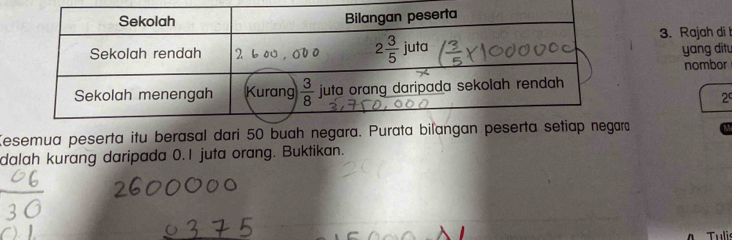 Sekolah Bilangan peserta
Sekolah rendah 2.600,000 2 3/5 juta (3/5 × 1000000
Sekolah menengah Kurang 3/8 juta orang daripada sekolah rendah
3,750,000
Kesemua peserta itu berasal dari 50 buah negara. Purata bilangan peserta setiap negara
dalah kurang daripada 0.1 juta orang. Buktikan.
06
30
01
2600000
0375
3. Rajah di
yang ditu
nombor
Tulis